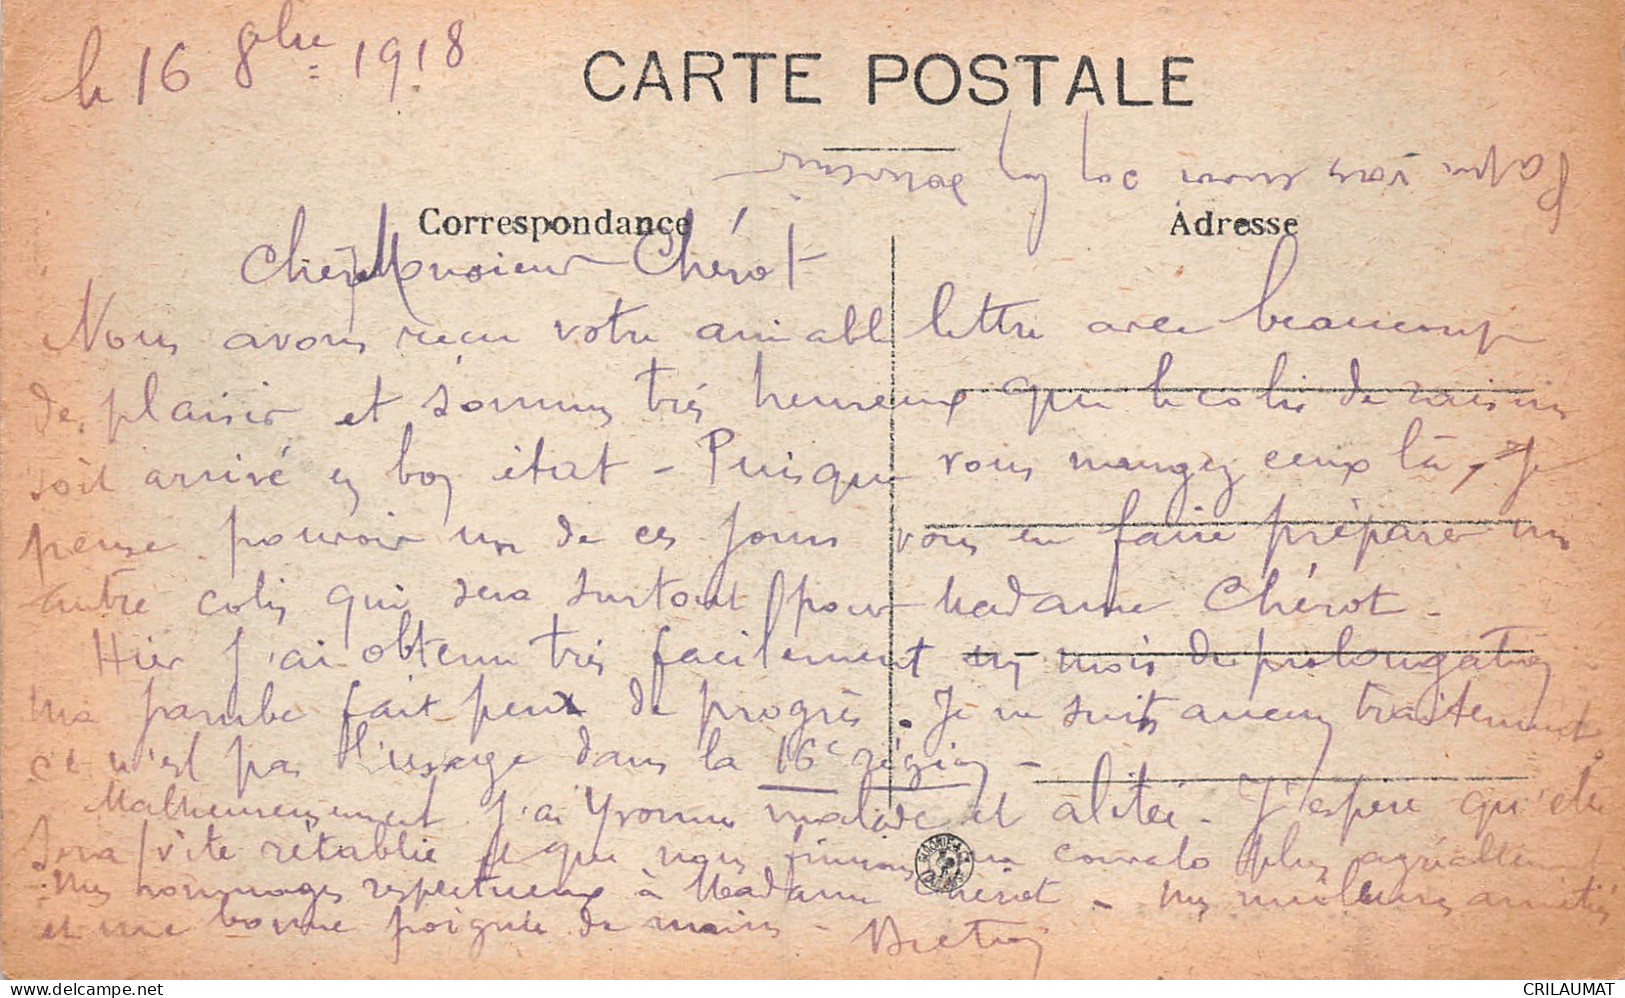 le 16 8bre 1918
CARTE POSTALE
Papa vous envoie
Correspondance
Adresse
Cher Monsieur Chérot
Nous avons reçu votre aimable lettre avec beaucoup
de plaisir et sommes très heureux que le colis de raisins
soit arrivé en bon état - Puisque vous mangez ceux là, Je
pense pouvoir un de ces jours vous en faire préparer un
autre colis qui sera surtout pour Madame Chérot -
Hier j'ai obtenu très facilement un mois de prolongation
Ma jambe fait peu de progrès. Je ne suis aucun traitement
ce n'est pas l'usage dans la 16e région -
Malheureusement j'ai Yvonne malade et alitée - J'espère qu'elle
sera vite rétablie et que nous finirons ma convalo plus agréablement
Mes hommages respectueux à Madame Chérot - Mes meilleures amitiés
et une bonne poignée de mains -
CRILAUMAT